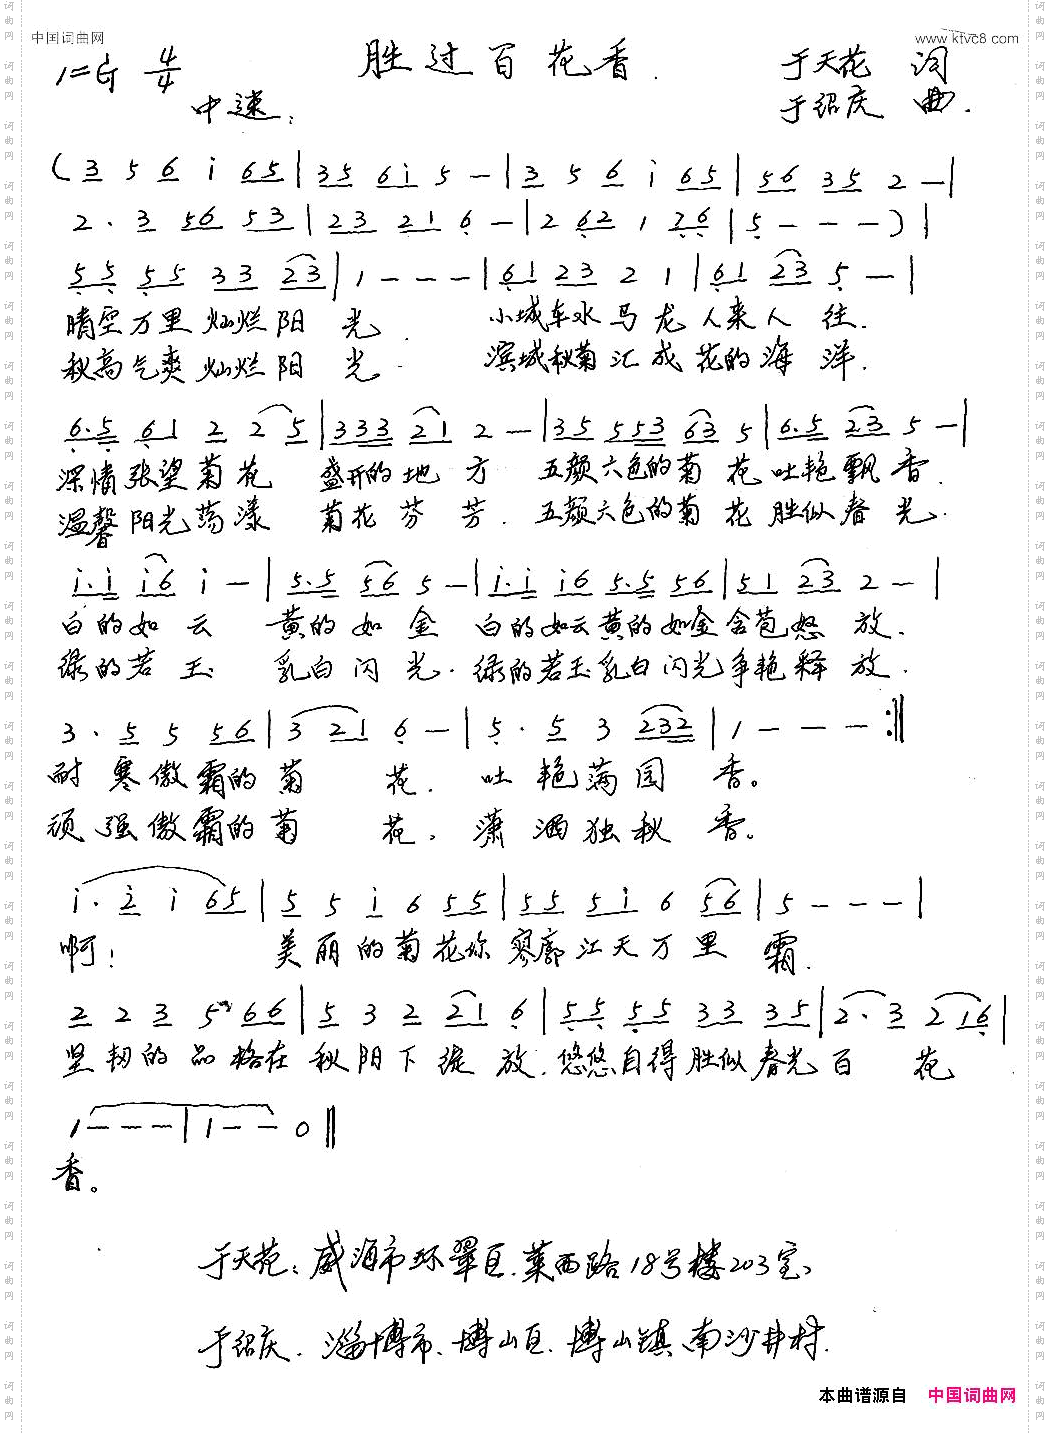 中国词曲网
www.ktvc8.com
胜过百花香
1=G 4/4
中速:
于天花 词
于绍庆 曲.
(3 5 6 i 65|35 6i 5 –|3 5 6 i 65|56 35 2 –|
2· 3 56 53|23 21 6 –|2 62 1 26|5 – – – )|
55 55 33 23|1 – – –|61 23 2 1|61 23 5 –|
晴空万里灿烂阳 光. 小城车水马龙人来人 往.
秋高气爽灿烂阳 光. 滨城秋菊汇成花的海 洋.
6·5 61 2 2 5|333 21 2 –|35 553 63 5|6·5 23 5 –|
深情张望菊花 盛开的地 方 五颜六色的菊 花吐艳飘香.
温馨阳光荡漾 菊花芬 芳. 五颜六色的菊 花 胜似春 光.
i·i i6 i –|5·5 56 5 –|i·i i6 5·5 56|51 23 2 –|
白的如云 黄的如金 白的如云黄的如金含苞怒 放.
绿的若玉 乳白闪光. 绿的若玉乳白闪光争艳释 放.
3· 5 5 56|3 21 6 –|5· 5 3 232|1 – – – :||
耐 寒傲霜的菊 花. 吐 艳满园 香。
顽 强傲霜的菊 花. 潇 洒独秋 香。
i· 2 i 65|5 5 i 6 55|55 5i 6 56|5 – – –|
啊! 美丽的菊花你 寥廓江天万里 霜.
2 2 3 5 66|5 3 2 21 6|55 55 33 35|2· 3 2 16|
坚韧的品格在 秋阳下绽 放. 悠悠自得胜似春光百 花
1 – – –|1 – – 0||
香。
于天花: 威海市环翠区.莱西路18号楼203室.
于绍庆. 淄博市、博山区.博山镇.南沙井村.
本曲谱源自 中国词曲网